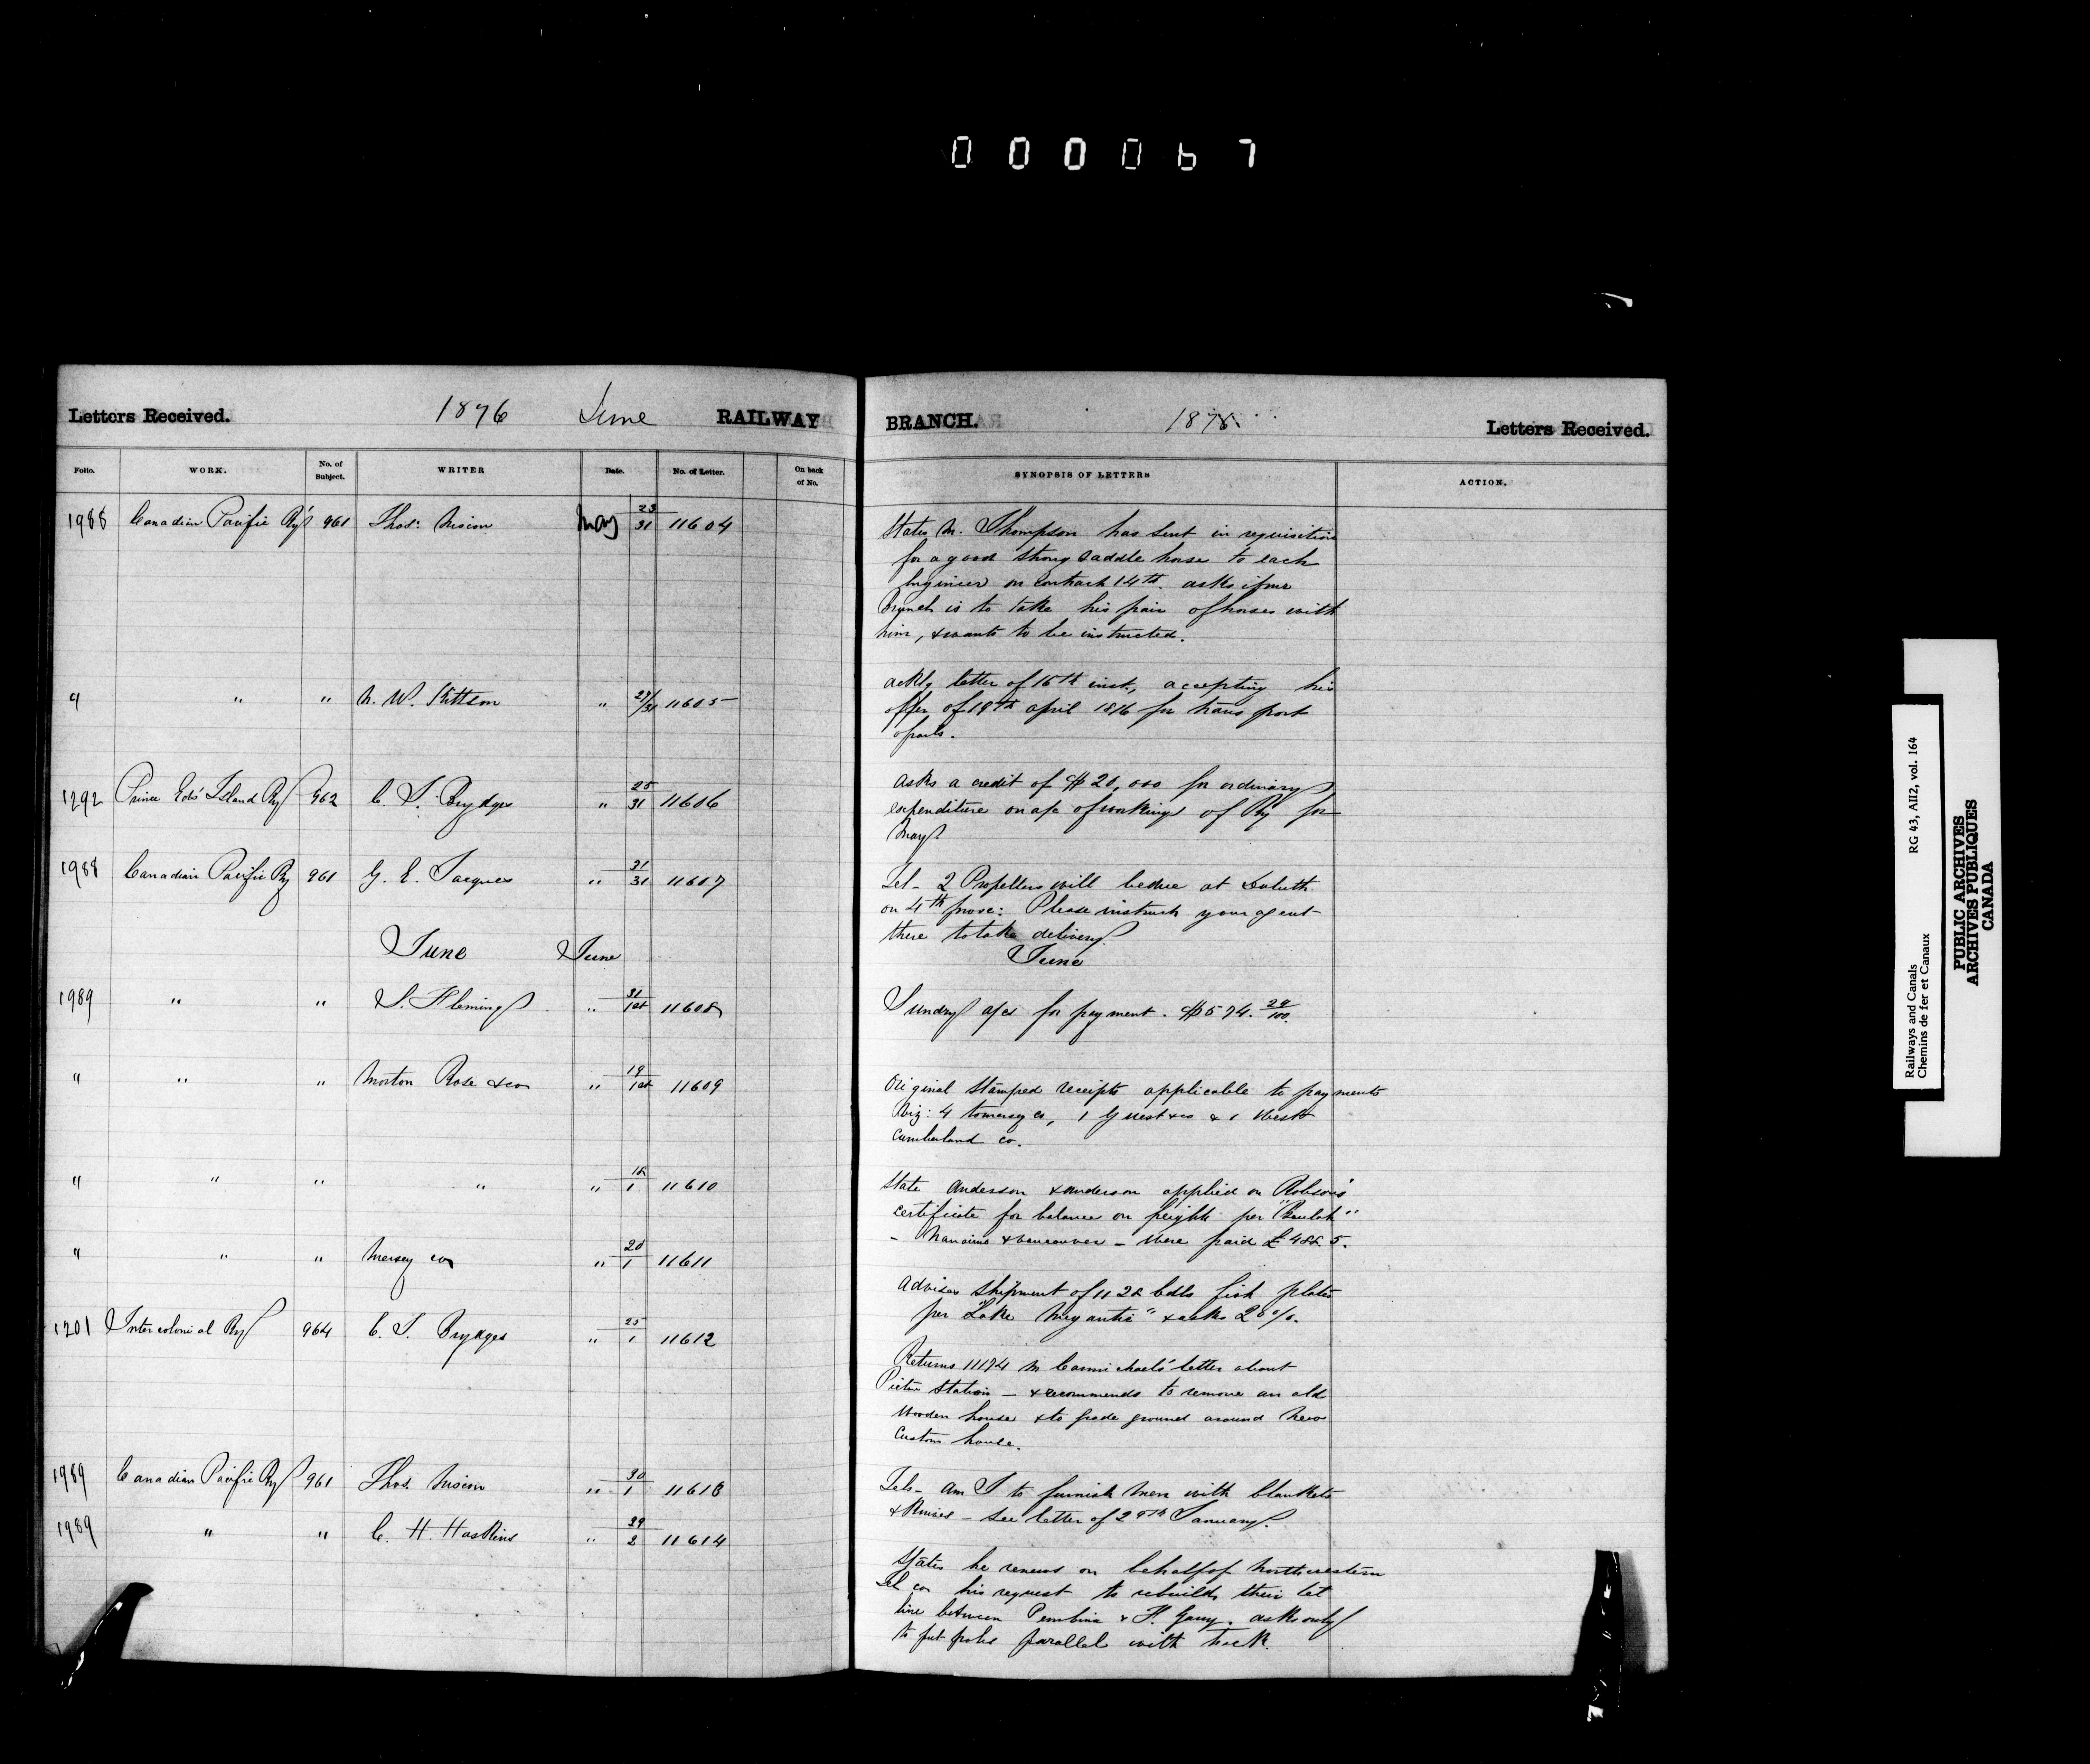 000067
Letters Received. 1876 June RAILWAY
Folio. WORK. No. of Subject. WRITER Date. No. of Letter. On back of No.
1988 Canadian Pacific Ry 961 Thos. Nixon May 23/31 11604
" " " N. W. Kittson " 27/31 11605
1292 Prince Edw' Island Ry 962 C. J. Brydges " 25/31 11606
1988 Canadian Pacific Ry 961 G. E. Jacques " 31/31 11607
June June
1989 " " S. Fleming " 31/1st 11608
" " " Morton Rose & co " 19/1st 11609
" " " " " 18/1 11610
" " " Mersey co " 20/1 11611
1201 Intercolonial Ry 964 C. J. Brydges " 25/1 11612
1989 Canadian Pacific Ry 961 Thos. Nixon " 30/1 11613
1989 " " C. H. Haskins " 29/2 11614
BRANCH. 1876 Letters Received.
SYNOPSIS OF LETTERS ACTION.
States M. Thompson has sent in requisition
for a good strong saddle horse to each
Engineer on contract 14th. asks if
is to take his pair of horses with
him, & wants to be instructed.
letter of 15th inst., accepting his
offer of 19th april 1876 for transport
of
asks a credit of $20,000 for ordinary
expenditure on a/c of working of Ry for
May
Tel - 2 Propellers will be due at Duluth
on 4th prox: Please instruct your agent
there to take delivery
June
Sundry a/cs for payment. $574. 29/100.
Original stamped receipts applicable to payments
viz: 4 to mersey co, 1 Guest & co & 1 West
Cumberland co.
State Anderson & anderson applied on Robson's
certificate for balance on freight per "Beulah"
- Nanaimo & Vancouver - were paid £ 488. 5.
Advises shipment of 1128 bdls fish plates
per "Lake Megantic" & asks 20%.
Returns 11174 M Carmichael's letter about
Pictou Station - & recommends to remove an old
wooden house & to grade ground around New
Custom house.
Tels - Am I to furnish men with blankets
& Knives - see letter of 29th January.
States he renews on behalf of Northwestern
Tel co his request to rebuild their tel
line between Pembina & F. Garry. asks only
to put poles parallel with track.
Railways and Canals
Chemins de fer et Canaux
RG 43, AII2, vol. 164
PUBLIC ARCHIVES
ARCHIVES PUBLIQUES
CANADA